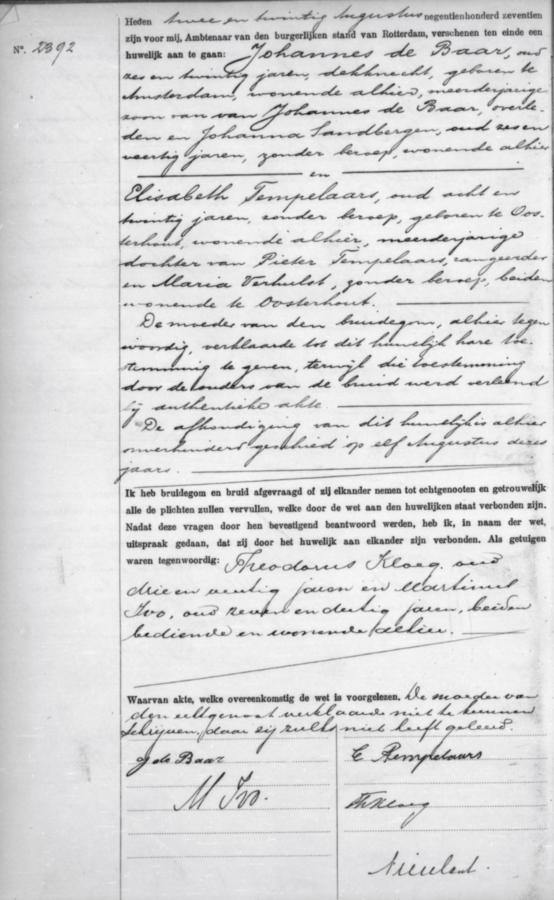 Heden twee en twintig Augustus negentienhonderd zeventien
zijn voor mij, Ambtenaar van den burgerlijken stand van Rotterdam, verschenen ten einde een
No. 2392
huwelijk aan te gaan: Johannes de Baar, oud
zes en twintig jaren, dekknecht, geboren te
Amsterdam, wonende alhier, meerderjarige
zoon van van Johannes de Baar, overle-
den en Johanna Sandbergen, oud zes en
veertig jaren, zonder beroep, wonende alhier
en
Elisabeth Tempelaars, oud acht en
twintig jaren, zonder beroep, geboren te Oos-
terhout, wonende alhier, meerderjarige
dochter van Pieter Tempelaars, rangeerder
en Maria Verhulst, zonder beroep, beiden
wonende te Oosterhout.
De moeder van den bruidegom, alhier tegen
woordig, verklaarde tot dit huwelijk hare toe-
stemming te geven, terwijl die toestemming
door de ouders van de bruid werd verleend
bij authentieke akte.
De afkondiging van dit huwelijk is alhier
onverhinderd geschied op elf Augustus dezes
jaars.
Ik heb bruidegom en bruid afgevraagd of zij elkander nemen tot echtgenooten en getrouwelijk
alle de plichten zullen vervullen, welke door de wet aan den huwelijken staat verbonden zijn.
Nadat deze vragen door hen bevestigend beantwoord werden, heb ik, in naam der wet,
uitspraak gedaan, dat zij door het huwelijk aan elkander zijn verbonden. Als getuigen
waren tegenwoordig: Theodorus Kloeg, oud
drie en veertig jaren en Martinus
Ivo, oud zeven en dertig jaren, beiden
bediende en wonende alhier.
Waarvan akte, welke overeenkomstig de wet is voorgelezen. De moeder van
den echtgenoot verklaarde niet te kunnen
schrijven, daar zij zulks niet heeft geleerd.
J de Baar
E Tempelaars
M Ivo.
Th Kloeg